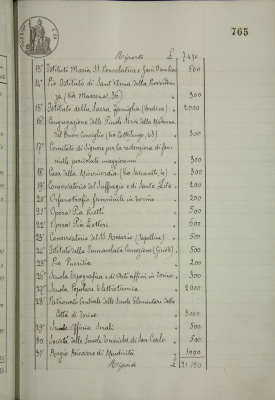 765
Riporto £ 7.450
13° Istituti Maria SS. Consolatrice e Gesù Bambino " 500
14° Pio Istituto di Sant'Anna della Provviden-
za (Via Massena, 36) " 300
15° Istituto della Sacra famiglia (Torino) " 2000
16° Congregazione delle Povere Serve della Madonna
del Buon Consiglio (Via Cottolengo, 43) " 300
17° Comitato di Signore per la redenzione di fan-
ciulle pericolate maggiorenni " 300
18° Casa della Misericordia 300
19° Conservatorio del Suffragio e di Santa Zita " 200
20° Orfanotrofio femminile in Torino " 200
21° Opera Pia 500
22° Opera Pia 600
23° Conservatorio del SS. Rosario (Sapelline) " 500
24° Istituto della Immacolata Concezione " 500
25° Pia 200
26° Scuola Tipografica e di Arti affini in Torino " 300
27° Scuola Popolare Elettrotecnica " 2000
28° Patronato Centrale delle Scuole Elementari della
Città di Torino " 3000
29° Scuole Officine Serali " 500
30° Società delle Scuole Tecniche di San Carlo " 500
31° Regio Ricovero di Mendicità " 1000
Riporto £ 21.150